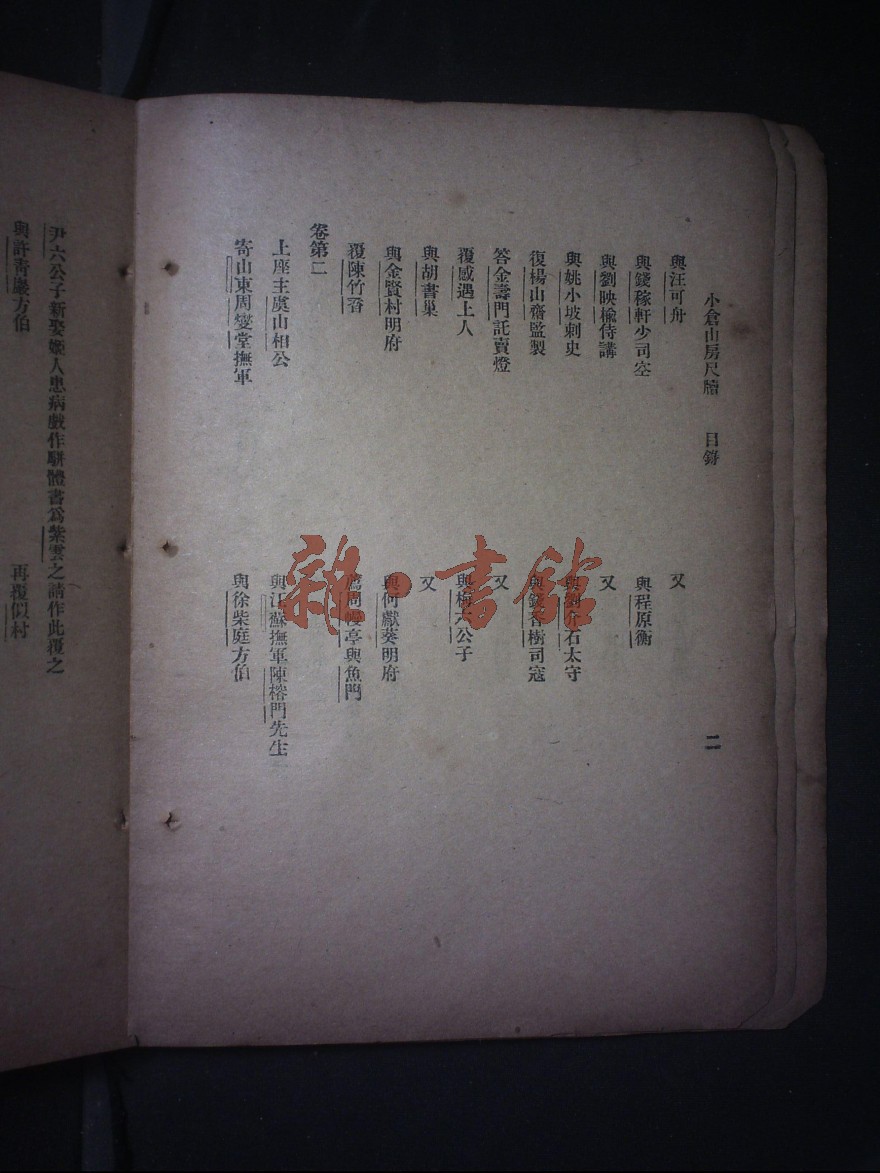 小倉山房尺牘 目錄 二
與汪可舟 又
與錢稼軒少司空 與程原衡
與劉映榆侍講 又
與姚小坡刺史 與劉介石太守
復楊山齋監製 與錢香樹司寇
答金壽門託賣燈 又
覆感遇上人 與梅六公子
與胡書巢 又
與金賢村明府 與何獻葵明府
覆陳竹香 薦周幔亭與魚門
卷第二
上座主虞山相公 與江蘇撫軍陳榕門先生
寄山東周燮堂撫軍 與徐柴庭方伯
尹六公子新娶姬人患病戲作駢體書爲紫雲之請作此覆之
與許靑巖方伯 再覆似村
雜·書館